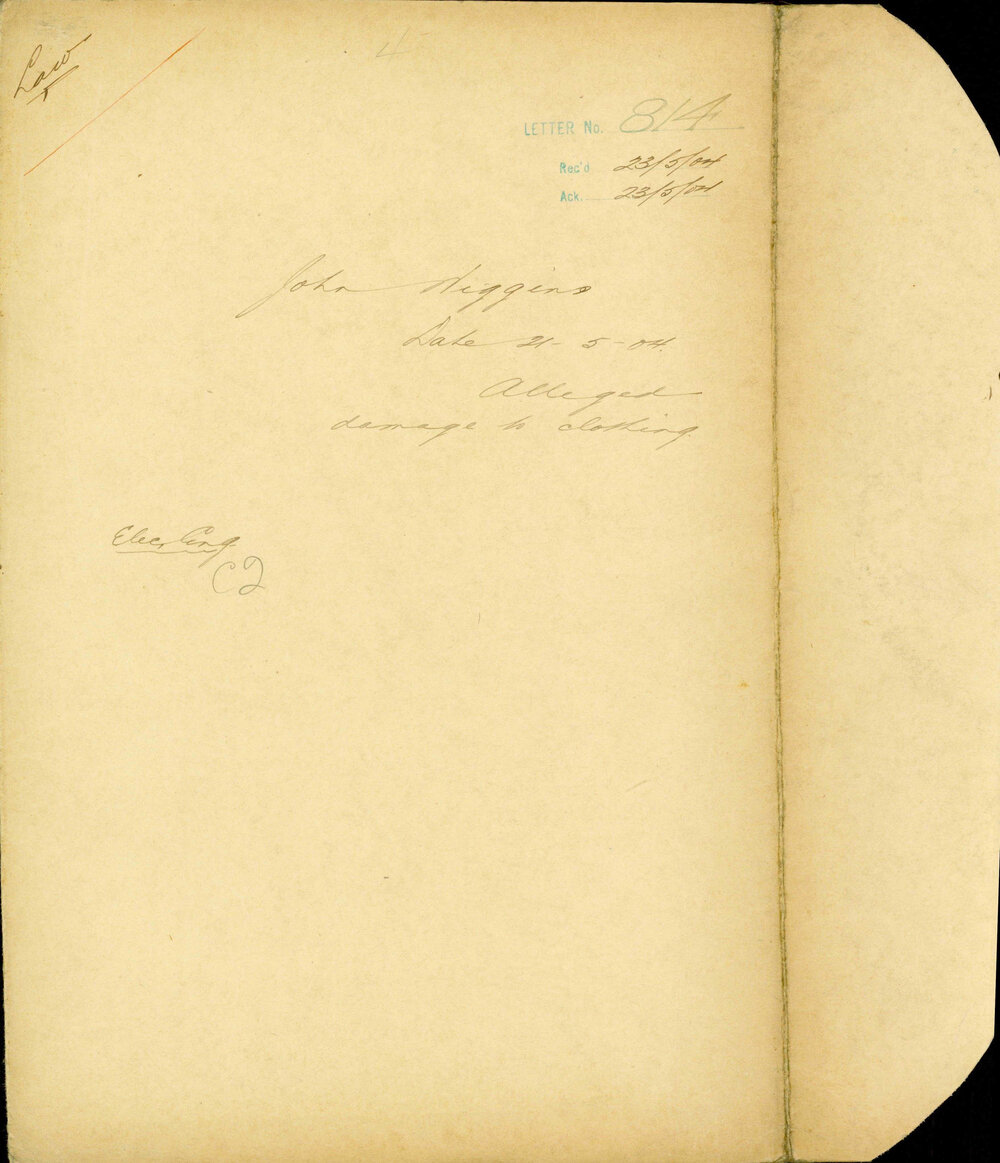 Law
4
LETTER No. 814
Rec'd 23/5/04
Ack. 23/5/04
John Higgins
Date 21-5-04.
Alleged
damage to clothing
Elec. Eng